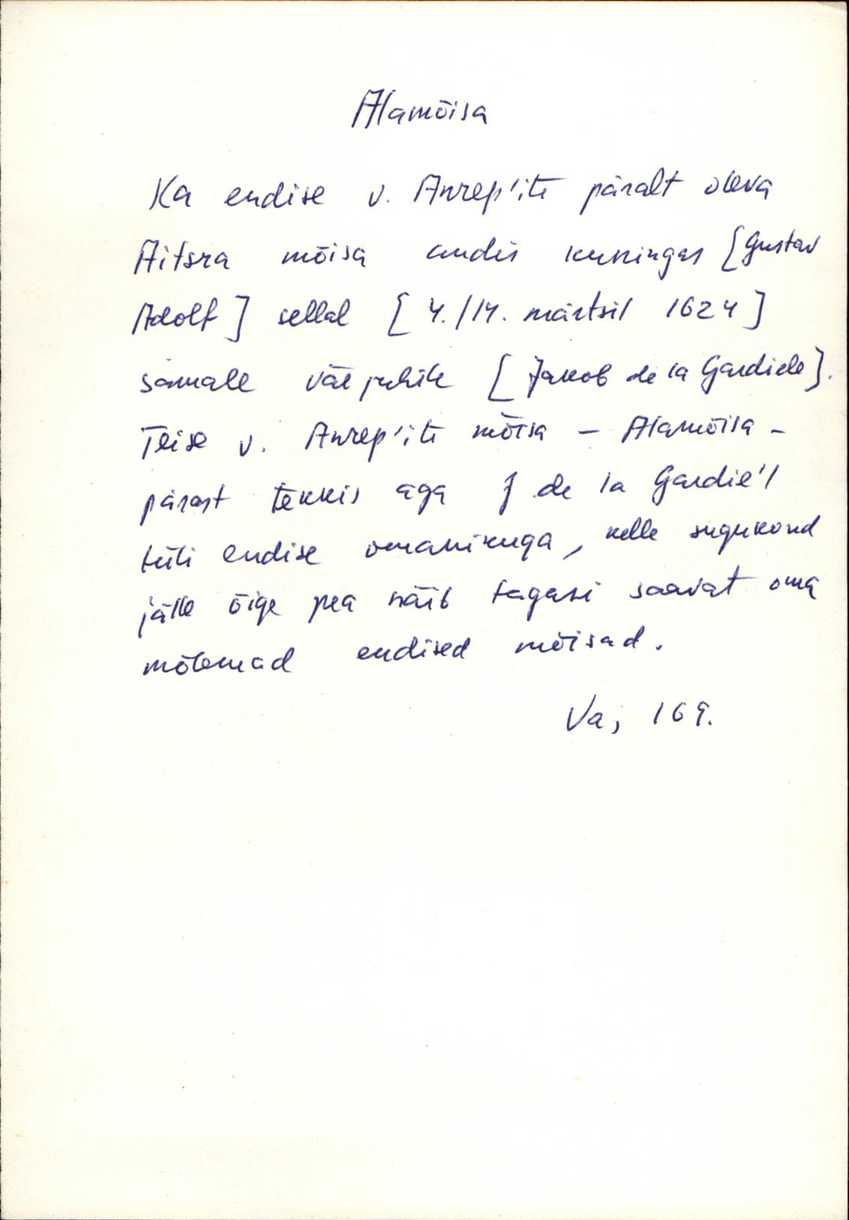 Alamõisa
Ka endise v. Anrep'ite päralt oleva
Aitsra mõisa andis kuningas [Gustav
Adolf] sellal [4./14. märtsil 1624]
samale väejuhile [Jakob de la Gardiele].
Teise v. Anrep'ite mõisa – Alamõisa –
pärast tekkis aga J. de la Gardie'l
tüli endise omanikuga, kelle sugukond
jälle õige pea näib tagasi saavat oma
mõlemad endised mõisad.
Va, 169.